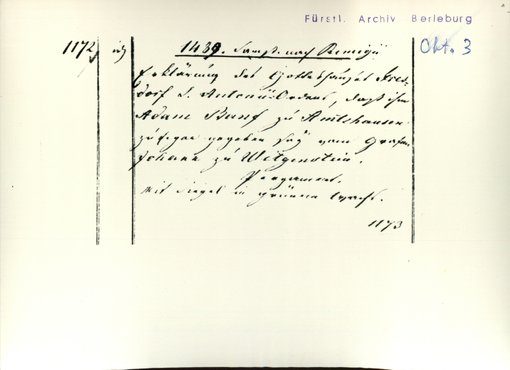 Fürstl. Archiv Berleburg
1172
1439. Samst. nach Remigii
Okt. 3
Erklärung des Gotteshauses Gres-
dorf d. Antonii Ordens, dass ihm
Adam zu Amtshausen
zu eigen gegeben sey vom Grafen
Johann zu Witgenstein.
Pergament.
Mit Siegel in grünem Wachs.
1173